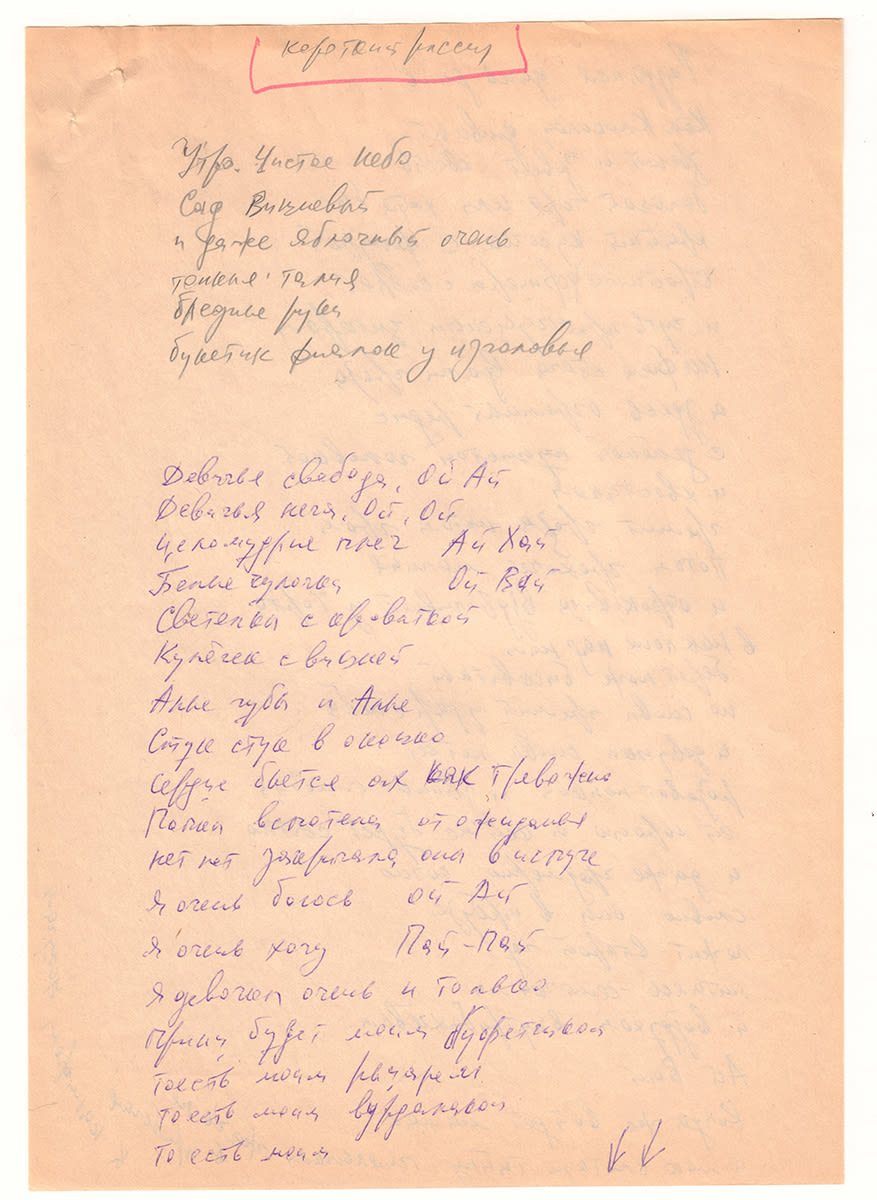 короткий рассказ
Утро. Чистое небо
Сад Вишневый
и даже яблочный очень
тонкая талия
бледные руки
букетик фиалок у изголовья
Девичья свобода, Ой Ай
Девичья нега, Ой, Ой
Целомудрие плеч Ай Хай
Белые чулочки Ой Вай
Светелка с кроваткой
Кулёчек с вишней
Алые губы и Алые
Стук стук в окошко
Сердце бьется ах как тревожно
от ожиданья
нет нет закричала она в испуге
Я очень боюсь Ой Ай
Я очень хочу Пай-Пай
Я девочка очень и только
Принц будет моим
тоесть моим рыцарем
тоесть моим вурдалаком
то есть моим